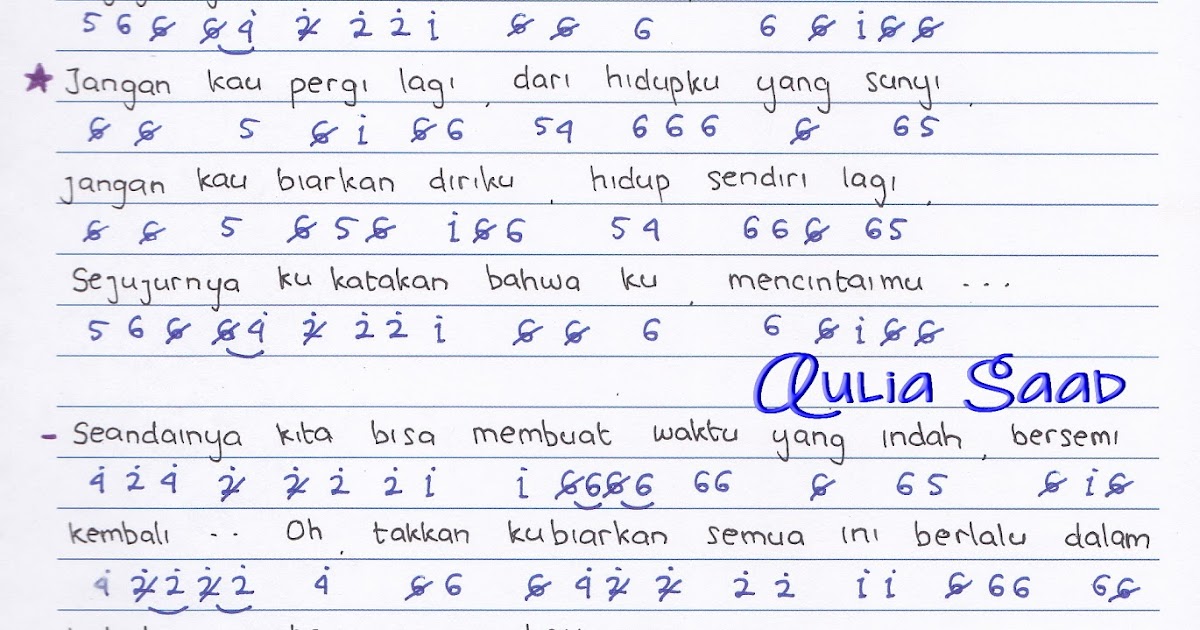 5 6 6̸ 6̸ 4̇ 2̸̇ 2̇ 2̇ i 6̸ 6̸ 6 6 6̸ i 6̸ 6̸
★ Jangan kau pergi lagi, dari hidupku yang sunyi,
6̸ 6̸ 5 6̸ i 6̸ 6 5 4 6 6 6 6̸ 6 5
jangan kau biarkan diriku, hidup sendiri lagi,
6̸ 6̸ 5 6̸ 5 6̸ i 6̸ 6 5 4 6 6 6̸ 6 5
Sejujurnya ku katakan bahwa ku, mencintaimu ...
5 6 6̸ 6̸ 4̇ 2̸̇ 2̇ 2̇ i 6̸ 6̸ 6 6 6̸ i 6̸ 6̸
Qulia Saad
- Seandainya kita bisa membuat waktu yang indah, bersemi
4̇ 2̇ 4̇ 2̸̇ 2̸̇ 2̇ 2̇ i i 6̸ 6 6̸ 6 6 6 6̸ 6 5 6̸ i 6̸
kembali .. Oh, takkan kubiarkan semua ini berlalu dalam
4̇ 2̸̇ 2̇ 2̸̇ 2̇ 4̇ 6̸ 6 6̸ 4̇ 2̸̇ 2̸̇ 2̇ 2̇ i i 6̸ 6 6 6 6̸